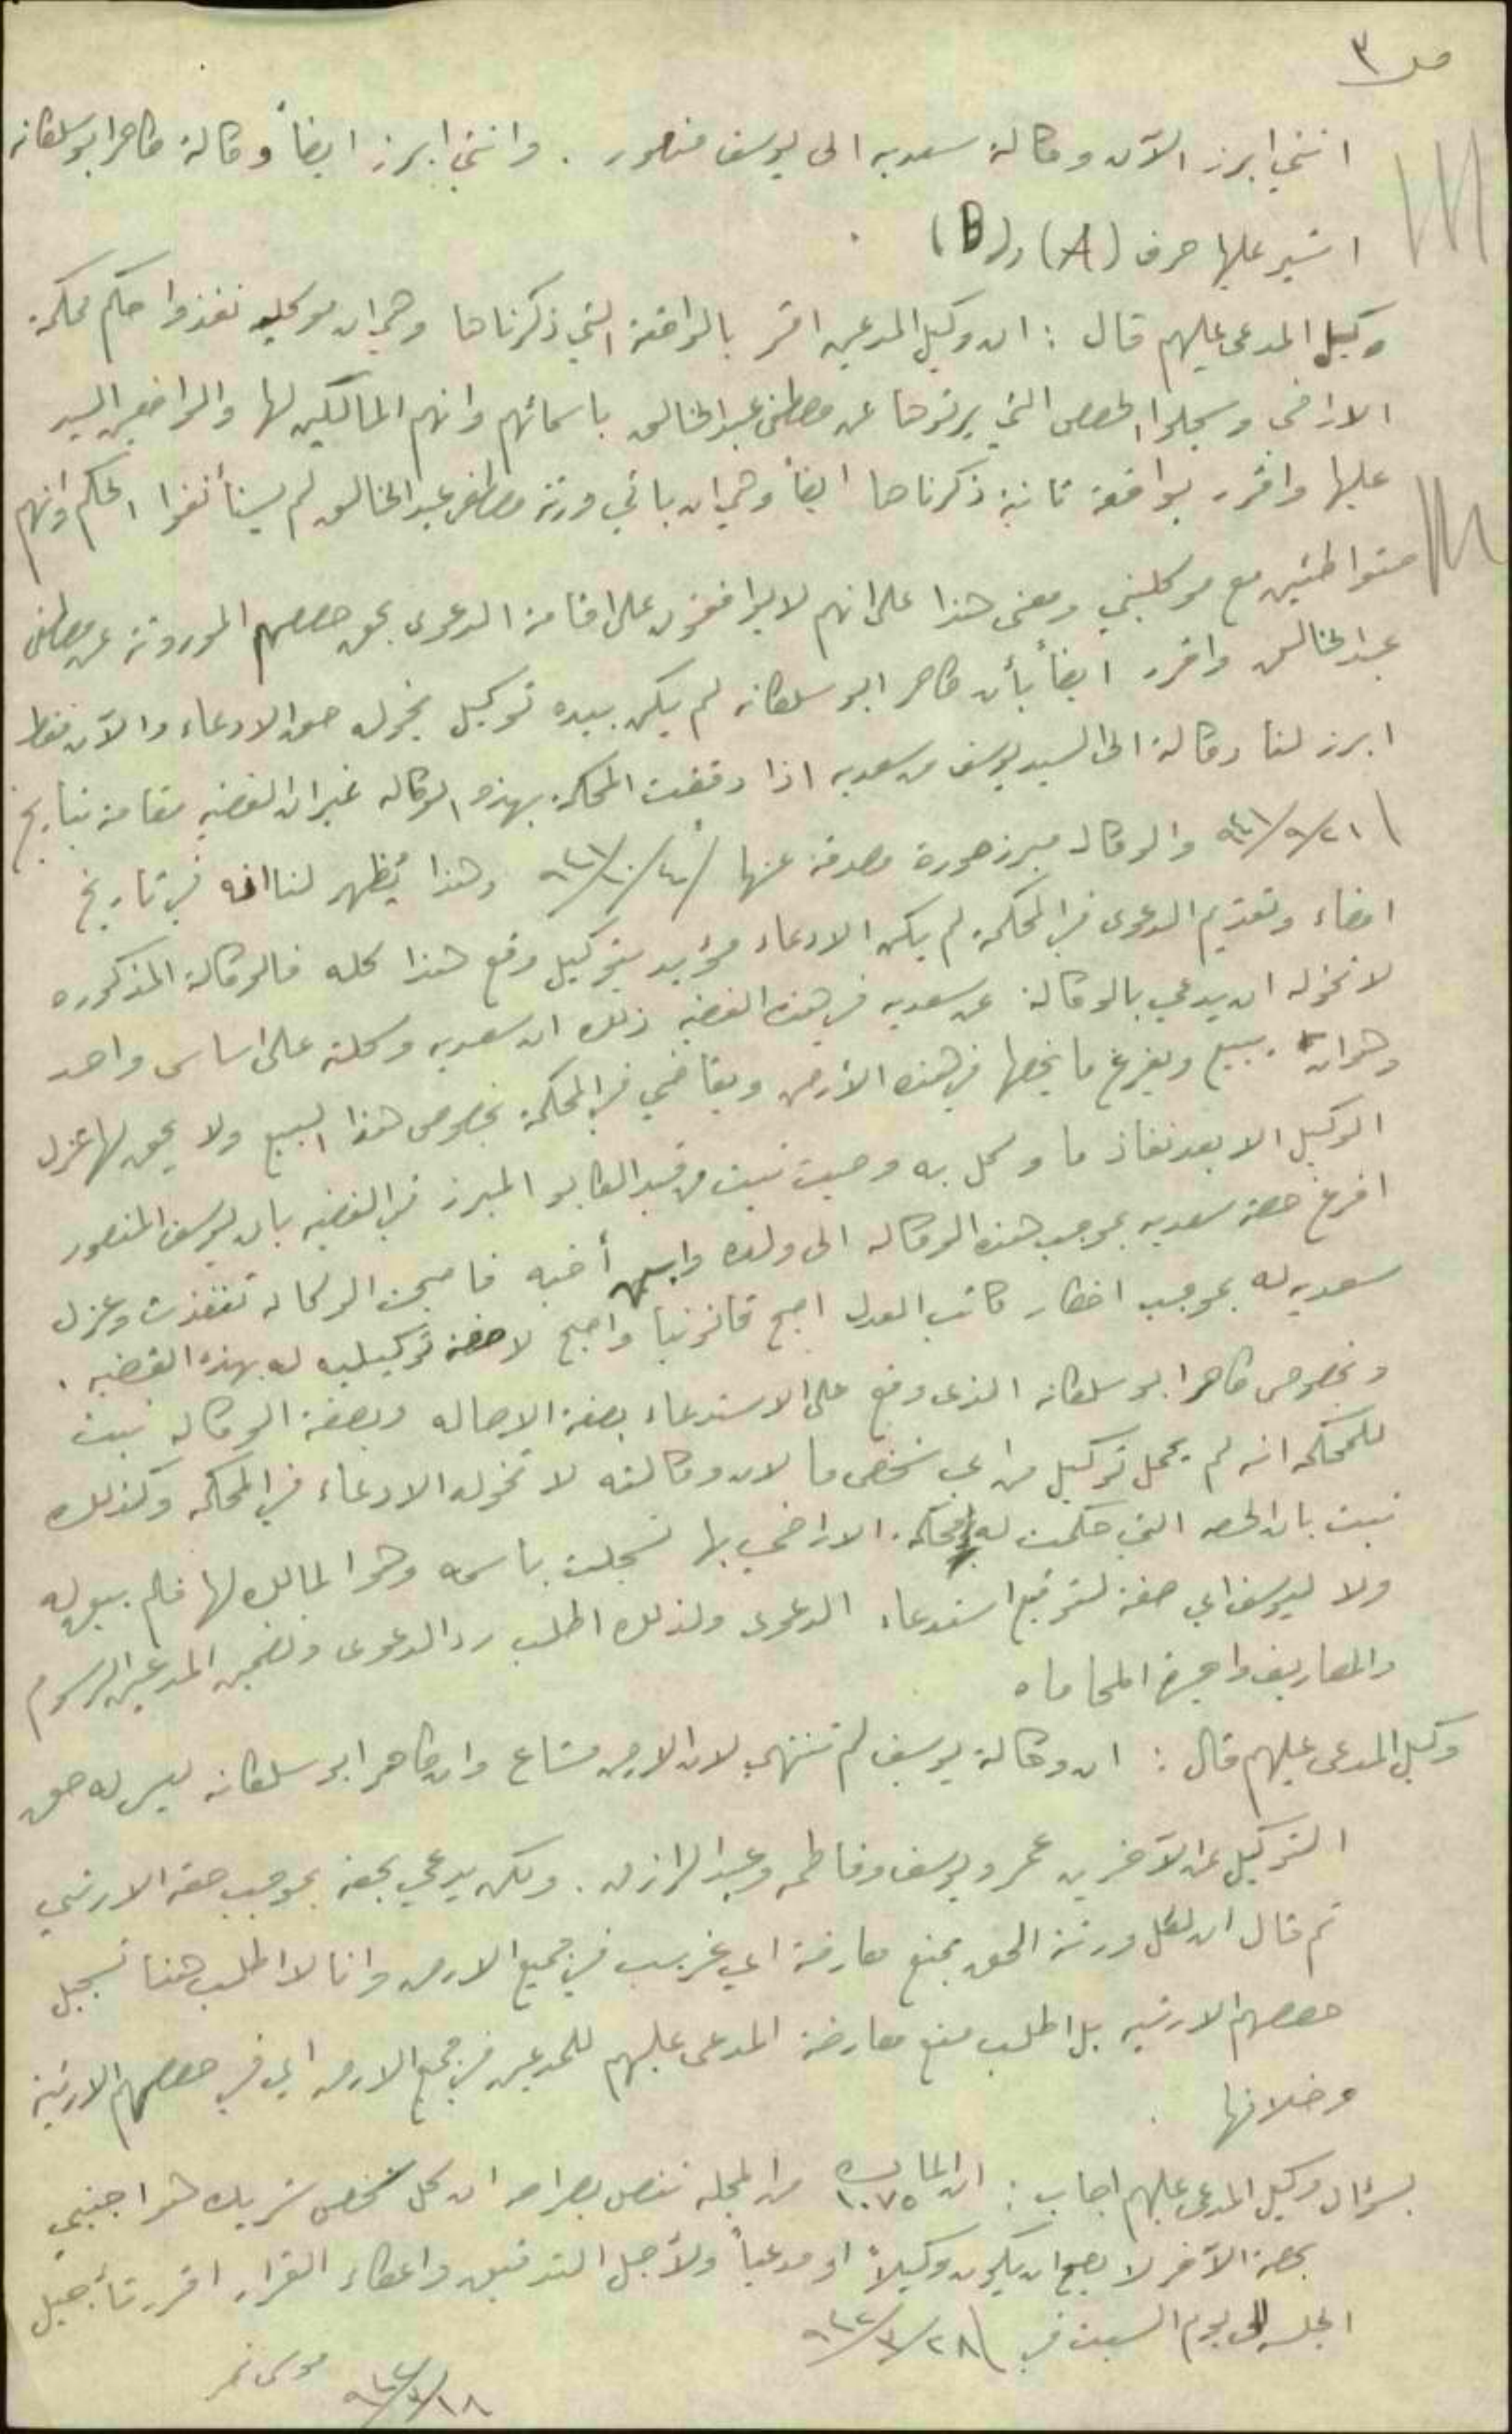 ص ٣
انني ابرز الآن وكالة سعديه الى يوسف منصور . وانني ابرز ايضاً وكالة طاهر ابو سلطانه
اشير عليها حرف (A) و(B)
وكيل المدعى عليهم قال : ان وكيل المدعين اقر بالواقعة التي ذكرناها وهي ان موكليه نفذوا حكم محكمة
الاراضي وسجلوا الحصص التي يرثوها عن مصطفى عبد الخالق باسمائهم وانهم المالكين لها والواضعين اليد
عليها واقرر بواقعة ثانية ذكرناها ايضاً وهي ان باقي ورثة مصطفى عبد الخالق لم يستأنفوا الحكم وانهم
متواطئين مع موكليني ومعنى هذا على انهم لا يوافقون على اقامة الدعوى بحق حصصهم الموروثة عن مصطفى
عبد الخالق واقرر ايضاً بأن طاهر ابو سلطانه لم يكن بيده توكيل يخوله حق الادعاء والآن فقط
ابرز لنا وكالة الى السيد يوسف من سعديه اذا دققت المحكمة بهذه الوكاله غير ان القضيه مقامة بتاريخ
٢١/٩/٩٤١ والوكاله مبرز صورة مصدقة عنها ٤/١٠/٩٤١ وهذا يُظهر لنا انه في تاريخ
امضاء وتقديم الدعوى في المحكمة لم يكن الادعاء مؤيد بتوكيل ومع هذا كله فالوكالة المذكوره
لا تخوله ان يدعي بالوكالة عن سعديه في هذه القضيه ذلك ان سعديه وكلته على اساس واحد
وهو ان يبيع ويفرغ ما يخصها في هذه الأرض ويقاضي في المحكمة بخصوص هذا البيع ولا يحق لها عزل
الوكيل الا بعد نفاذ ما وكل به وحيث ثبت من قيد الطابو المبرز في القضيه بان يوسف المنصور
افرغ حصة سعديه بموجب هذه الوكاله الى ولده وابن أخيه فاصبحت الوكاله تنفذت وعزل
سعديه له بموجب اخطار كاتب العدل اصبح قانونيا واصبح لا صفة توكيليه له بهذه القضيه .
وبخصوص طاهر ابو سلطانه الذي وقع على الاستدعاء بصفة الاصاله وبصفة الوكاله ثبت
للمحكمه انه لم يحمل توكيل من اي شخص ما لان وكالته لا تخوله الادعاء في المحكمه وكذلك
ثبت بان الحصه التي حكمت له محكمة الاراضي بها تسجلت باسمه وهو المالك لها فلم يبق له
ولا ليوسف اي صفة لتوقيع استدعاء الدعوى ولذلك اطلب رد الدعوى وتضمين المدعين الرسوم
والمصاريف واجرة المحاماه
وكيل المدعى عليهم قال : ان وكالة يوسف لم تنتهي لان الارض مشاع وان طاهر ابو سلطانه ليس له حق
التوكيل عن الآخرين عمر ويوسف وفاطمه وعبد الرازق . ولكن يدعي بحقه بموجب حقه الارثي
ثم قال ان لكل ورثة الحق بمنع معارضة اي غريب في جميع الارض وانا لا اطلب هنا تسجيل
حصصهم الارثيه بل اطلب منع معارضة المدعى عليهم للمدعين في جميع الارض اي في حصصهم الارثية
وخلافها .
بسؤال وكيل المدعى عليهم اجاب : ان الماده ١٠٧٥ من المجله تنص بصراحه ان كل شخص شريك هو اجنبي
بحصة الآخر لا يصح ان يكون وكيلاً او مدعياً ولأجل التدقيق واعطاء القرار اقرر تأجيل
الجلسه الى يوم السبت في ٢٨/٣/٩٤٢
موسى نمر ١٨/٣/٩٤٢